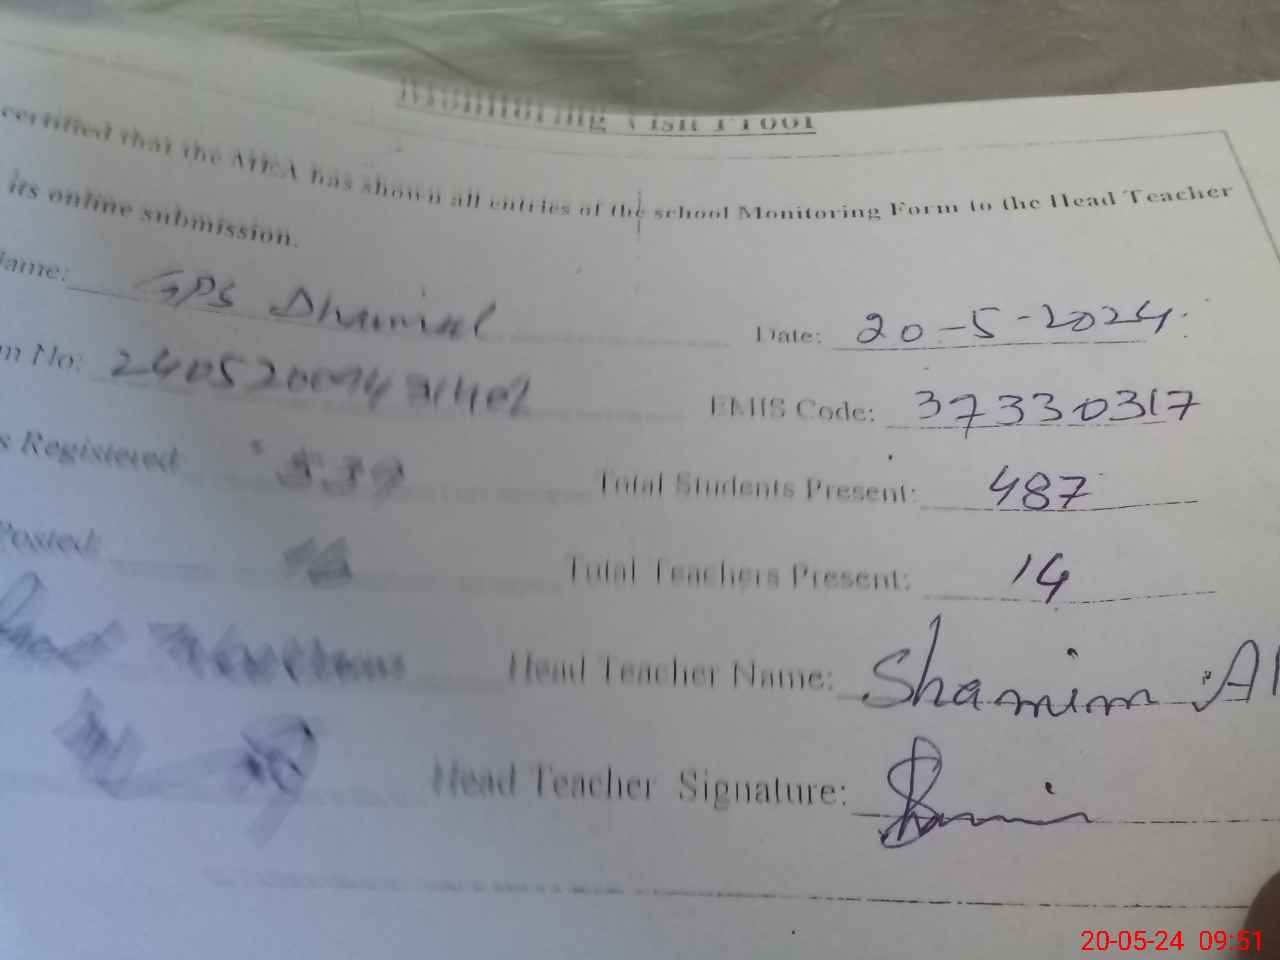 Monitoring Visit Proof
certified that the MEA has shown all entries of the school Monitoring Form to the Head Teacher
its online submission.
Name: GPS Dhamial Date: 20-5-2024
No: EMIS Code: 37330317
s Registered: 539 Total Students Present: 487
Posted: Total Teachers Present: 14
Head Teacher Name: Shamim
Head Teacher Signature:
20-05-24 09:51